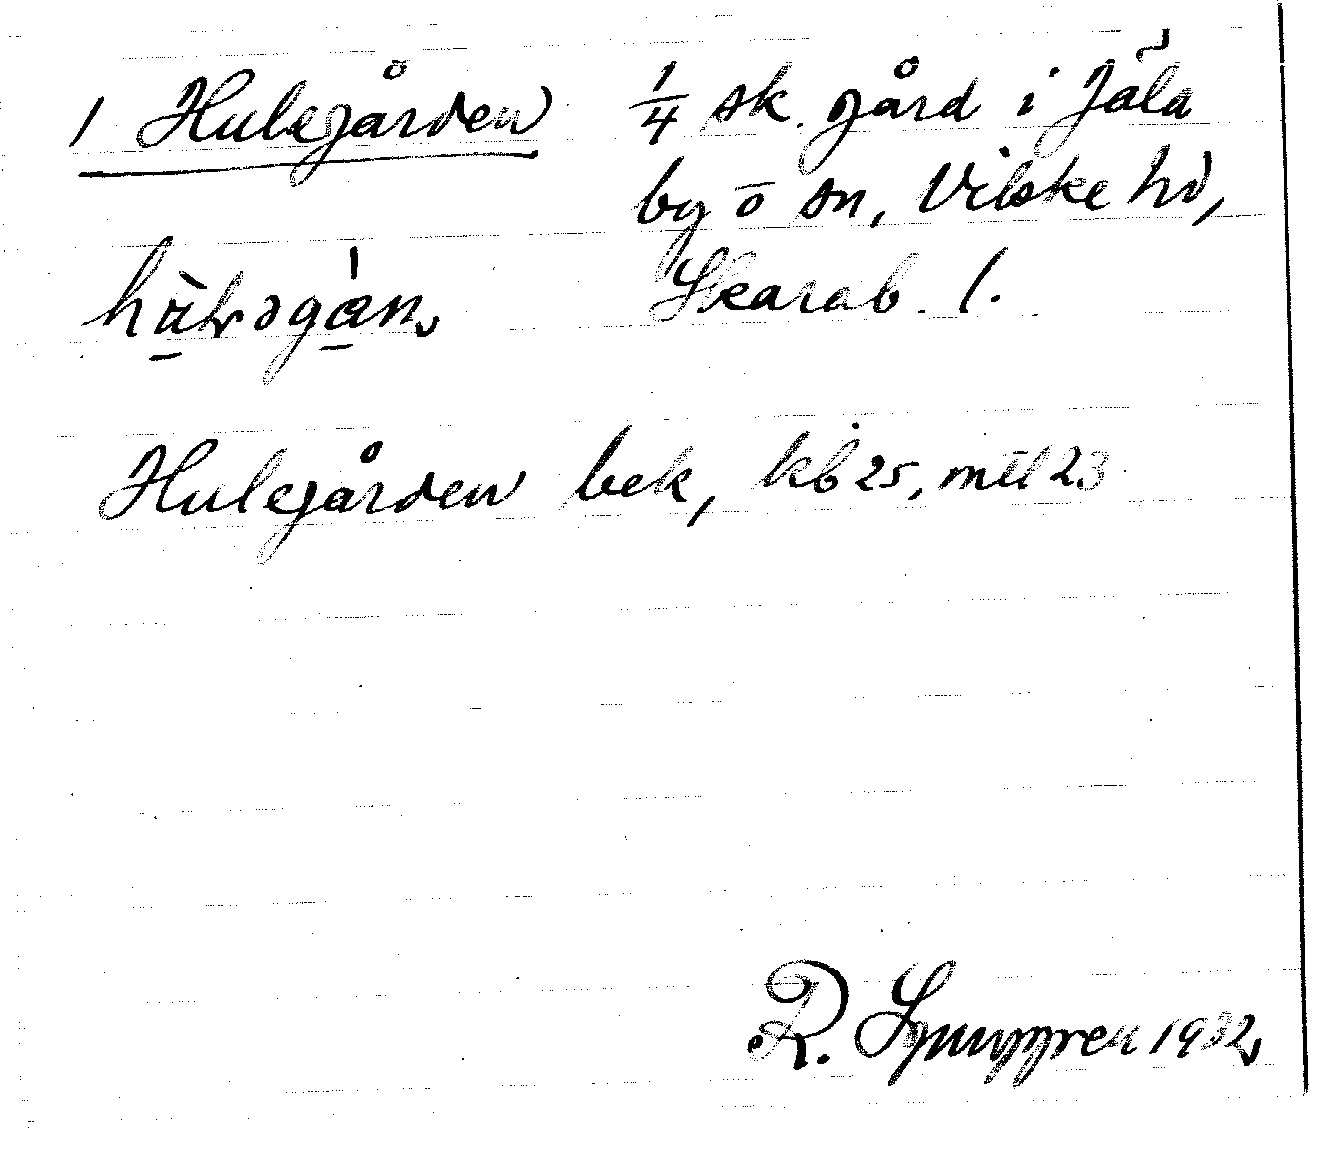 1 Hulegården 1/4 sk. gård i Jäla
by o sn, Vilske hd,
Skarab. l.
Hulegården bek, kb 25, mtl 23
R. Ljunggren 1932